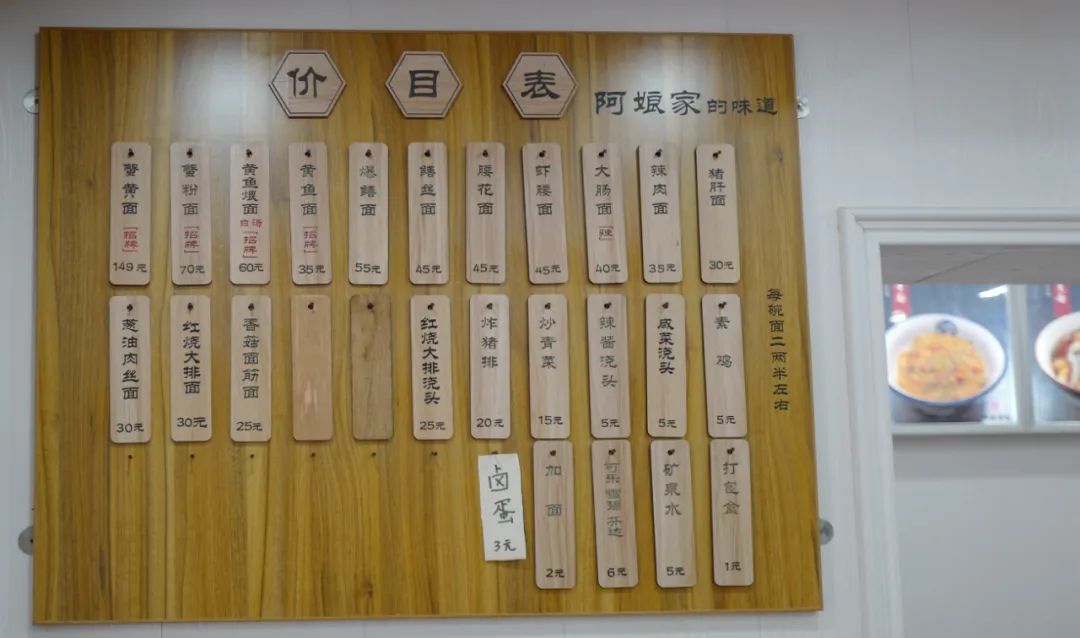 价目表
阿娘家的味道
蟹黄面 [招牌] 149元
蟹粉面 [招牌] 70元
黄鱼煨面 白汤 [招牌] 60元
黄鱼面 [招牌] 35元
爆鳝面 55元
鳝丝面 45元
腰花面 45元
虾腰面 45元
大肠面 [辣] 40元
辣肉面 35元
猪肝面 30元
葱油肉丝面 30元
红烧大排面 30元
香菇面筋面 25元
红烧大排浇头 25元
炸猪排 20元
炒青菜 15元
辣酱浇头 5元
咸菜浇头 5元
素鸡 5元
每碗面二两半左右
卤蛋 3元
加面 2元
可乐 雪碧 芬达 6元
矿泉水 5元
打包盒 1元